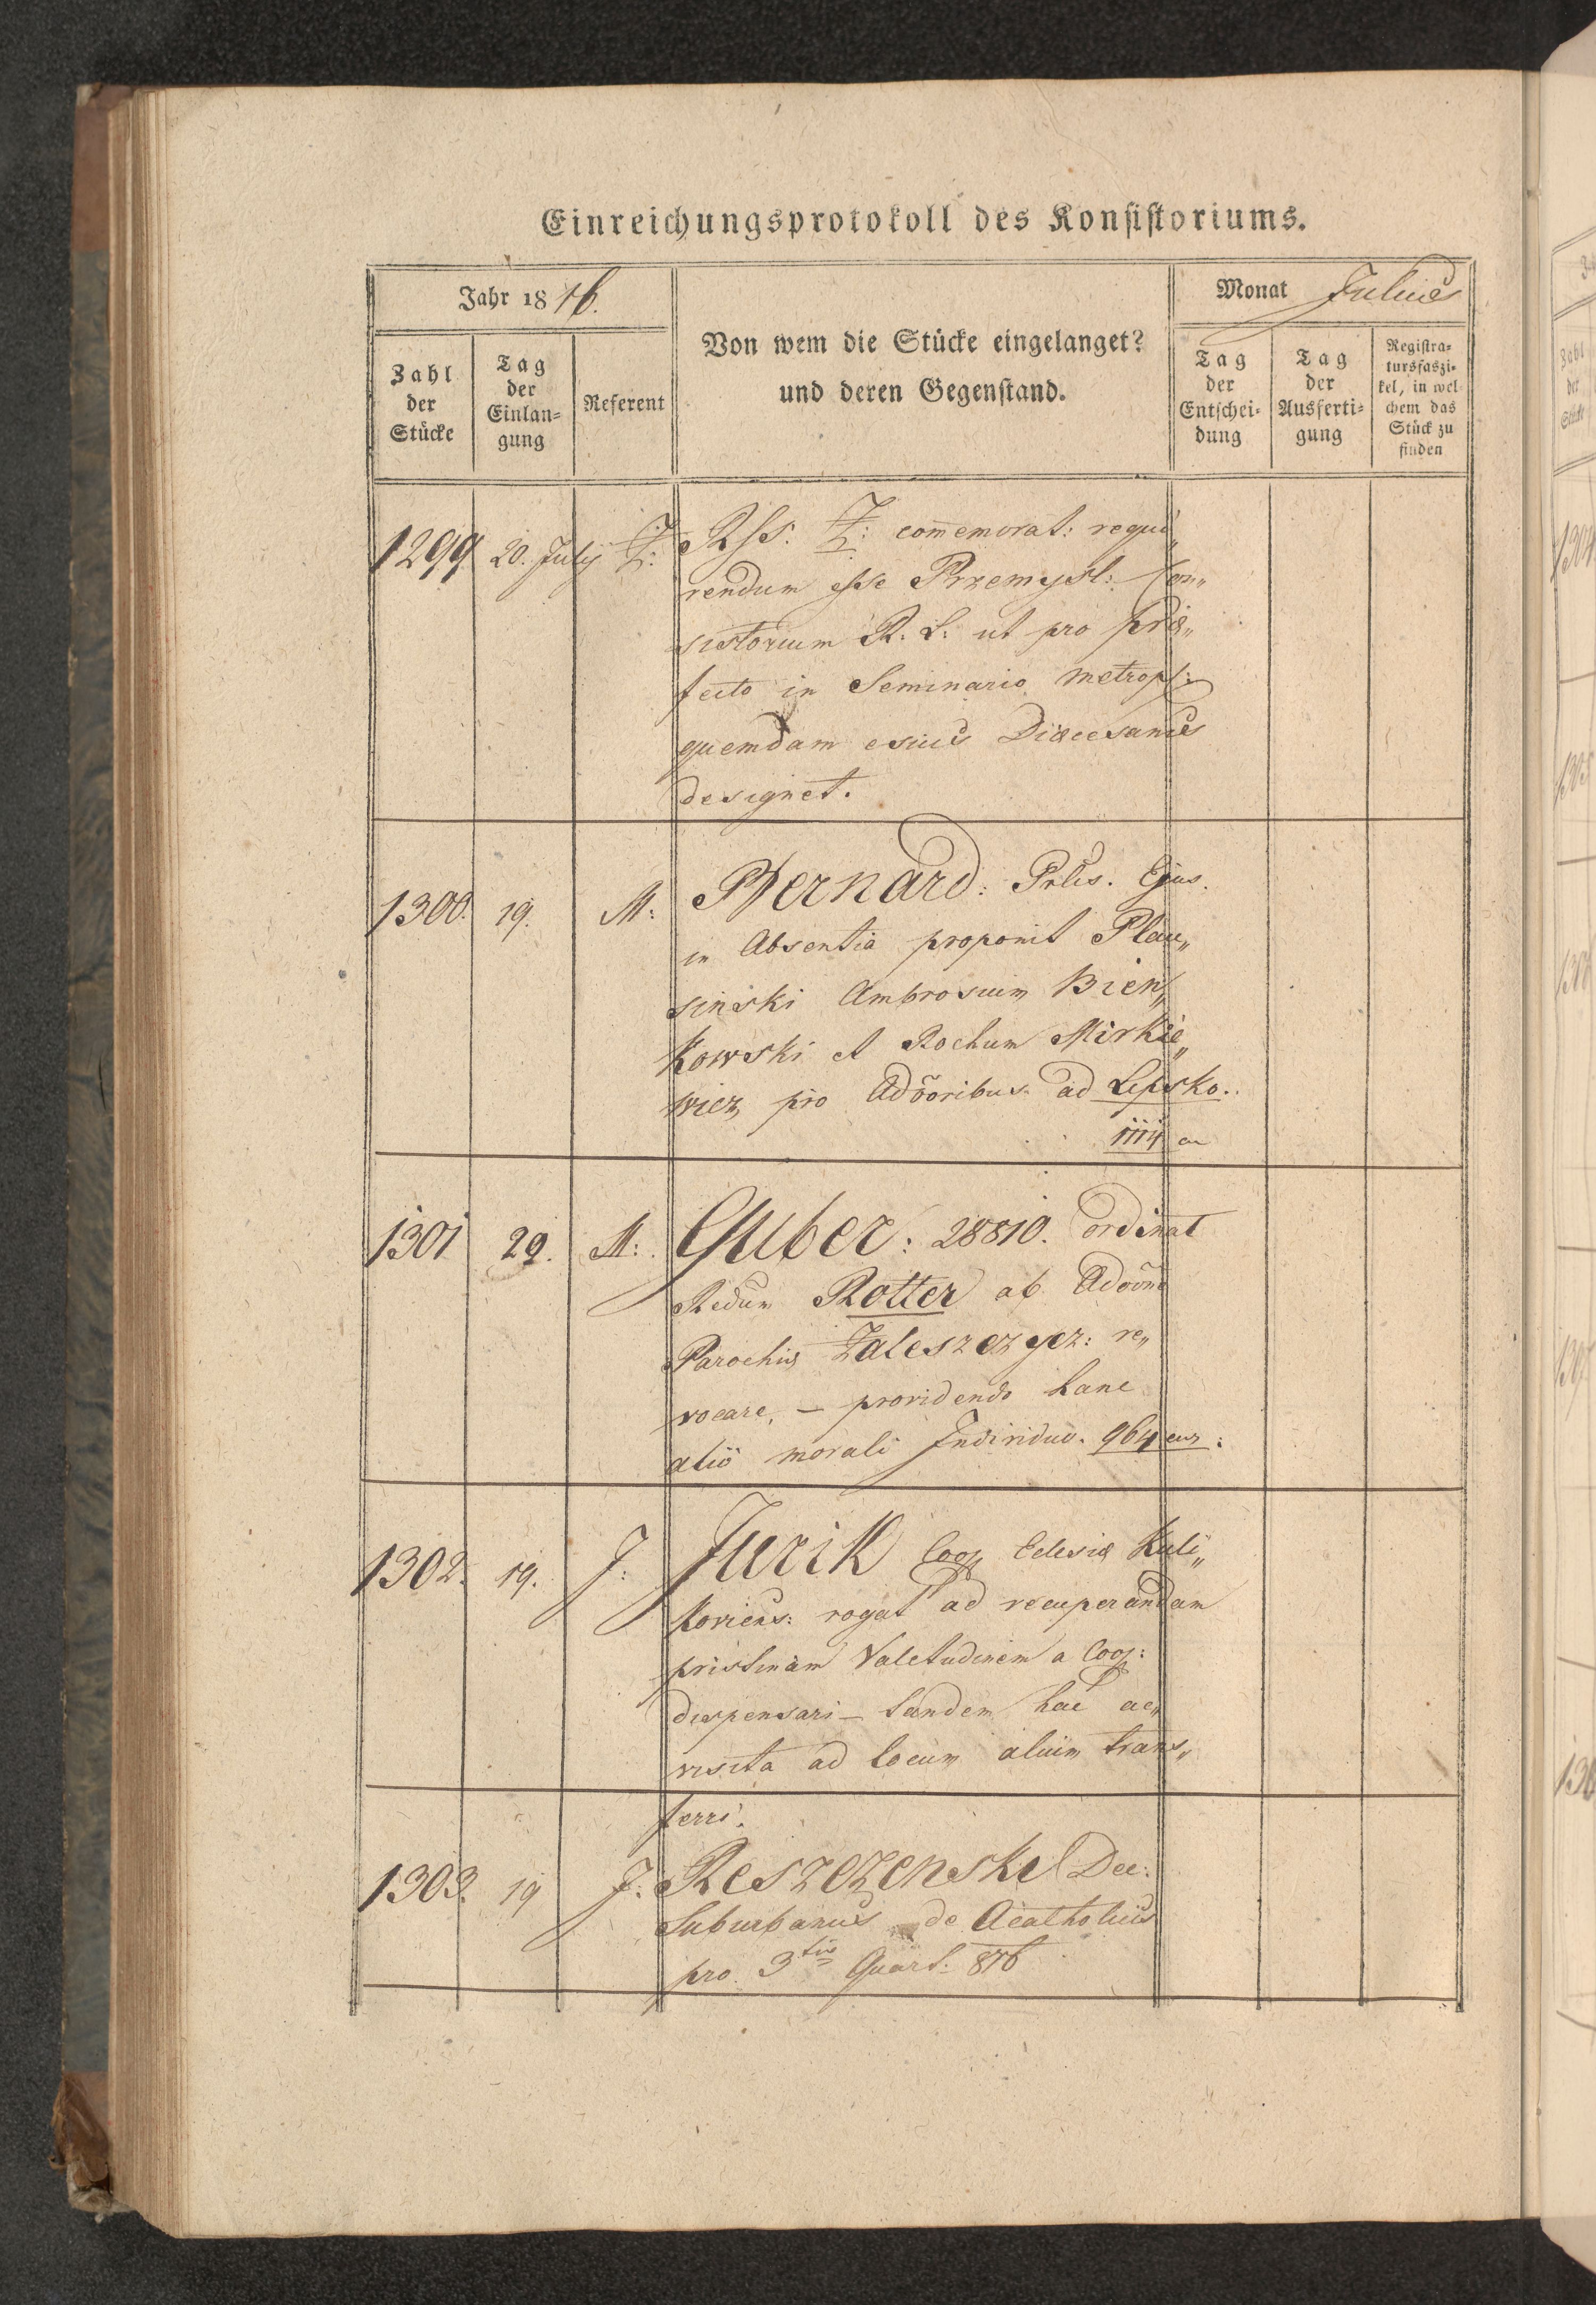 Einreichungsprotokoll des Konsistoriums.
Jahr 1816.
Monat Julius
Zahl der Stücke
Tag der Einlan=gung
Referent
Von wem die Stücke eingelanget?
und deren Gegenstand.
Tag der Entschei=dung
Tag der Ausferti=gung
Registra=tursfaszi=kel, in wel chem das Stück zu finden
1299 20. July Z: RSS. Z: commemorat: requi„
rendum esse Przemysl: Con„
sistorium R. L: ut pro Præ„
fecto in Seminario metropl:
quemdam esius Diæcesanus
designet.
1300. 19. M: Bernard: Prlis. Ejus.
in Absentia proponit Plau„
sinski Ambrosium Bien„
kowski et Rochum Mirkie„
wicz, pro Adōoribus ad Lipsko..
1301 29. M: Guber: 28810. ordinat
Redum Rotter ab Adōōne
Parochiæ Zaleszczycz: re„
vocare, — providendo hanc
alio morali Individuo. 964 cur:
1302. 19. J: Jurik Coop Eclesiæ Kuli„
koviens: rogat ad recuperandam
pristinam Valetudinem a Coop:
dispensari — tandem hac ac„
visita ad locum alium trans„
ferri.
1303. 19 J: Reszczenski Dec:
Suburbanus de Acatholicis
pro 3tio Quart: 816